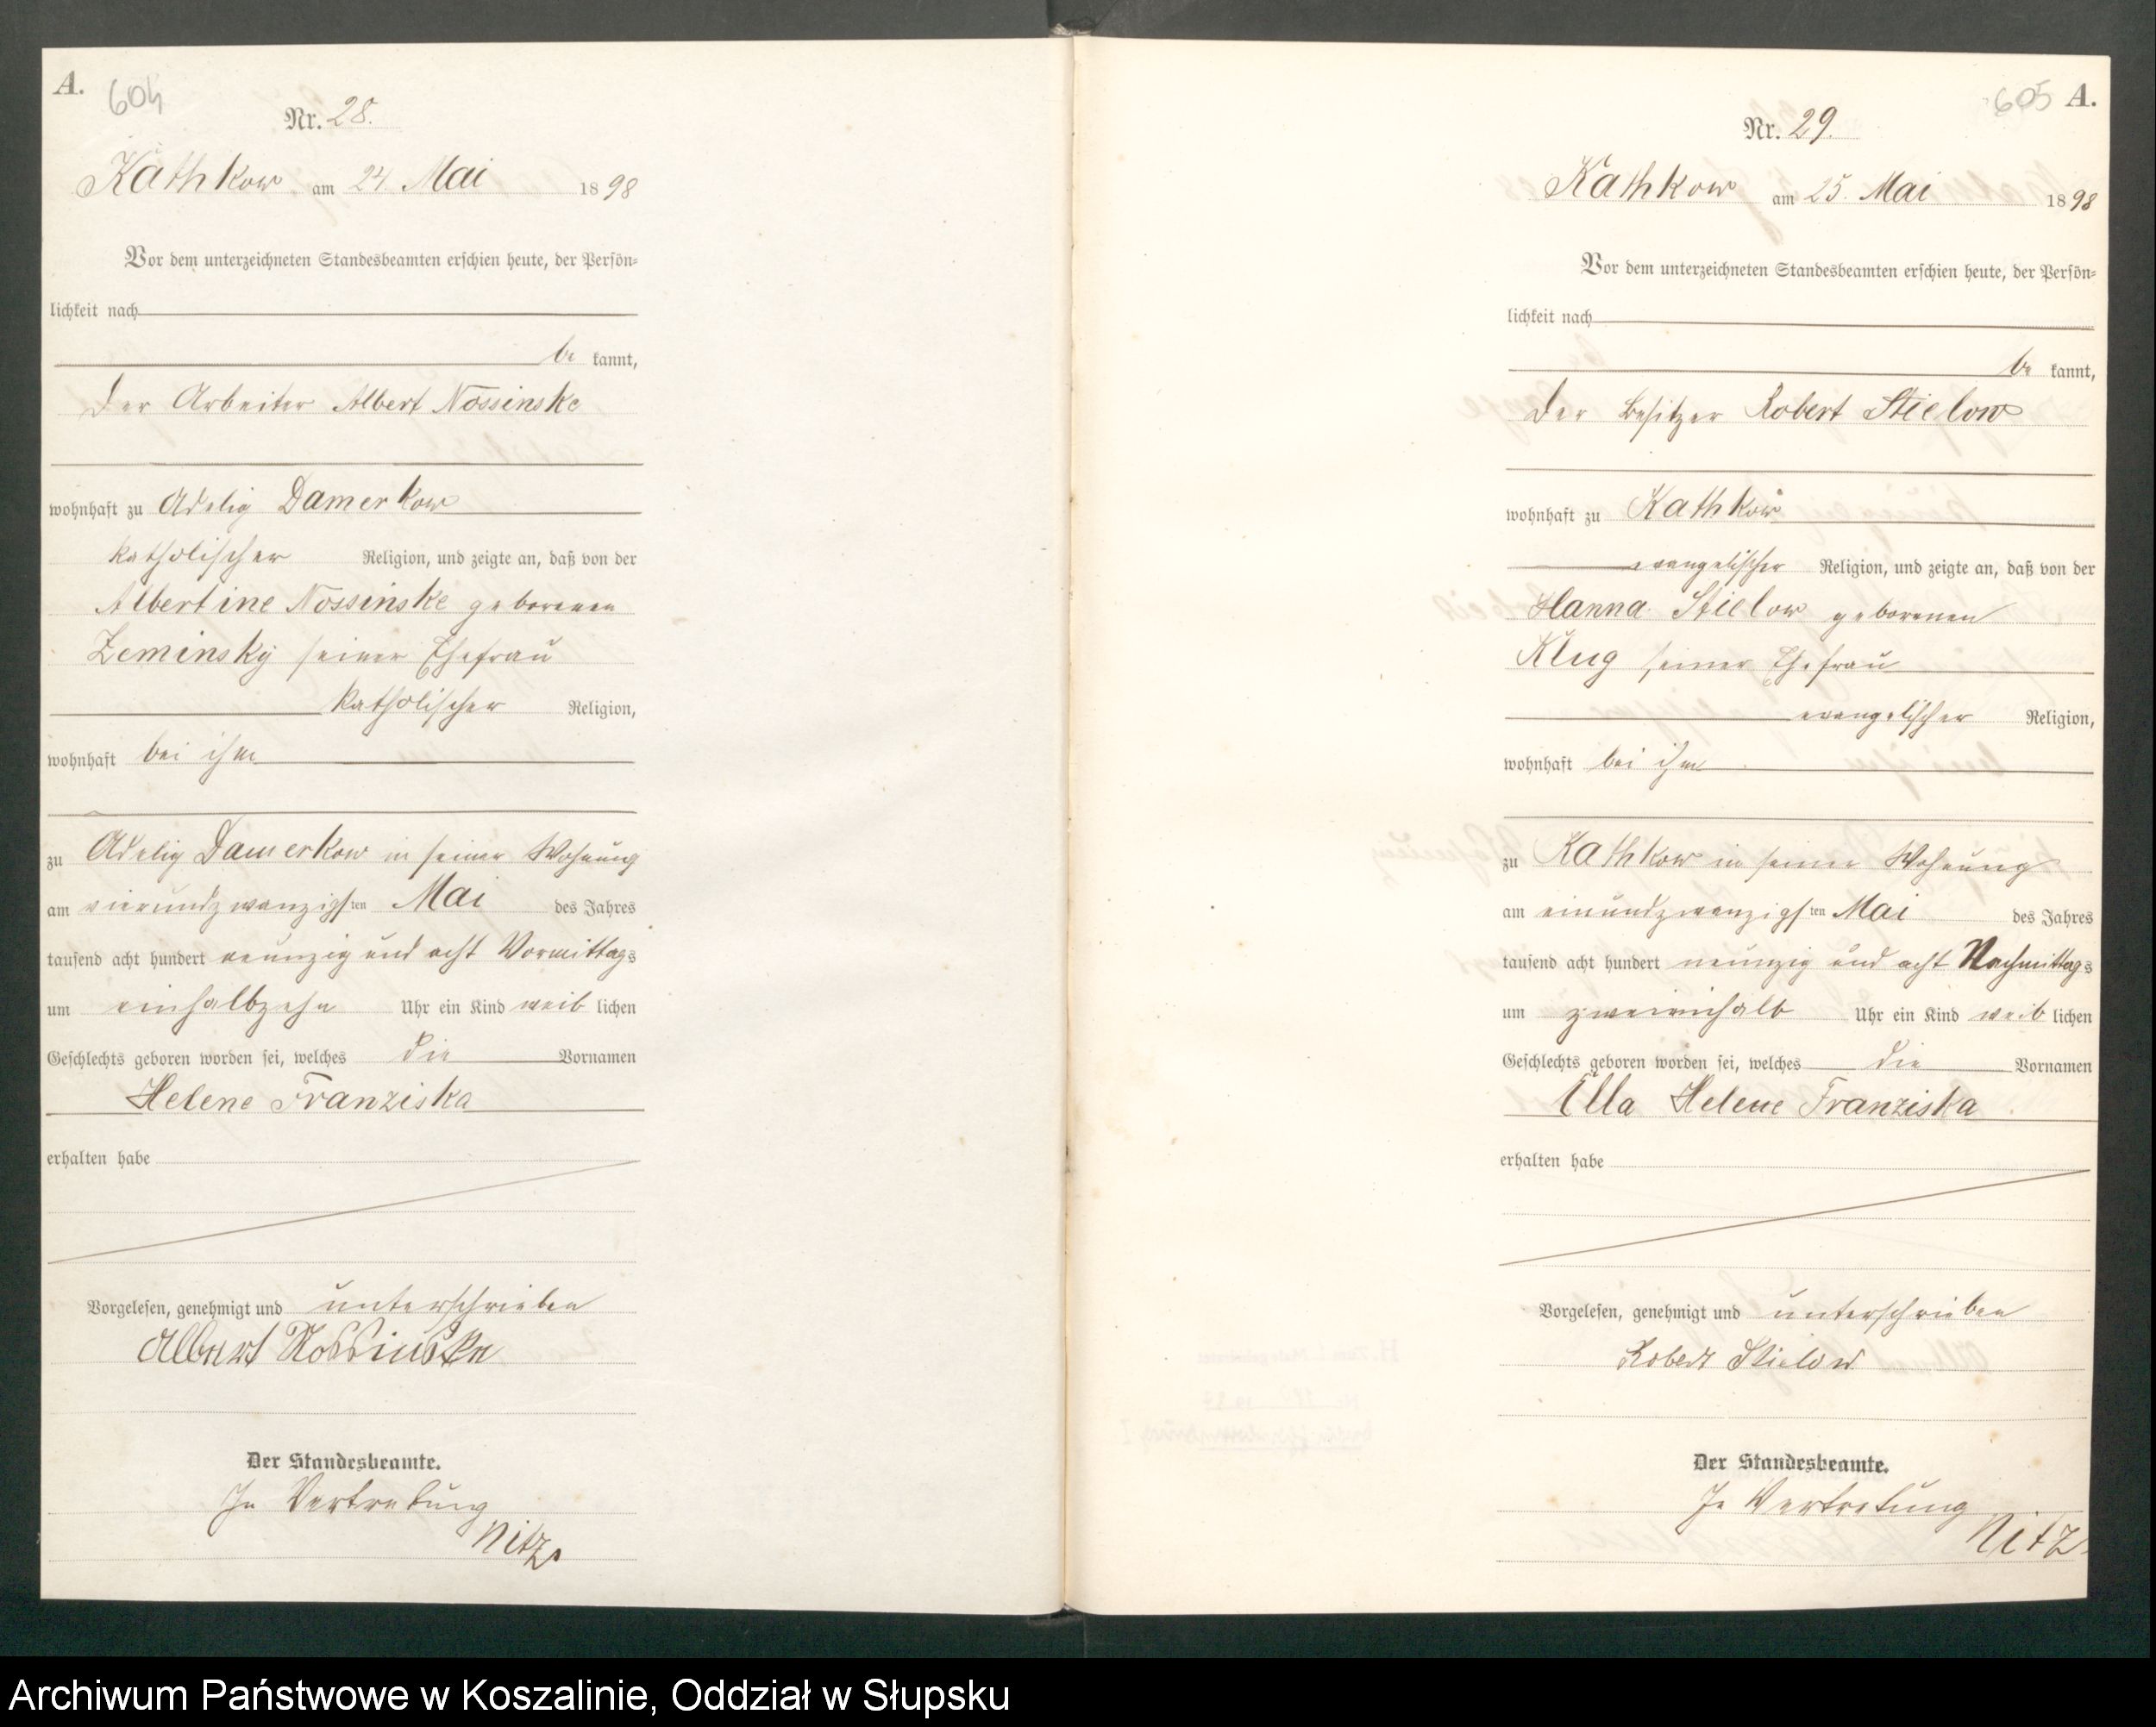 A.
604
Nr. 28.
Kathkow am 24. Mai 1898
Vor dem unterzeichneten Standesbeamten erschien heute, der Persön-
lichkeit nach
be kannt,
der Arbeiter Albert Nossinske
wohnhaft zu Adelig Damerkow
katholischer Religion, und zeigte an, daß von der
Albertine Nossinske geborenen
Zeminsky seiner Ehefrau
katholischer Religion,
wohnhaft bei ihm
zu Adelig Damerkow in seiner Wohnung
am vierundzwanzigsten Mai des Jahres
tausend acht hundert neunzig und acht Vormittags
um einhalbzehn Uhr ein Kind weiblichen
Geschlechts geboren worden sei, welches die Vornamen
Helene Franziska
erhalten habe
Vorgelesen, genehmigt und unterschrieben
Albert Nossinske
Der Standesbeamte.
In Vertretung
Nitz.
605 A.
Nr. 29.
Kathkow am 25. Mai 1898
Vor dem unterzeichneten Standesbeamten erschien heute, der Persön-
lichkeit nach
be kannt,
der Besitzer Robert Stielow
wohnhaft zu Kathkow
evangelischer Religion, und zeigte an, daß von der
Hanna Stielow geborenen
Klug seiner Ehefrau
evangelischer Religion,
wohnhaft bei ihm
zu Kathkow in seiner Wohnung
am einundzwanzigsten Mai des Jahres
tausend acht hundert neunzig und acht Nachmittags
um zweieinhalb Uhr ein Kind weiblichen
Geschlechts geboren worden sei, welches die Vornamen
Ella Helene Franziska
erhalten habe
Vorgelesen, genehmigt und unterschrieben
Robert Stielow
Der Standesbeamte.
In Vertretung
Nitz.
Archiwum Państwowe w Koszalinie, Oddział w Słupsku